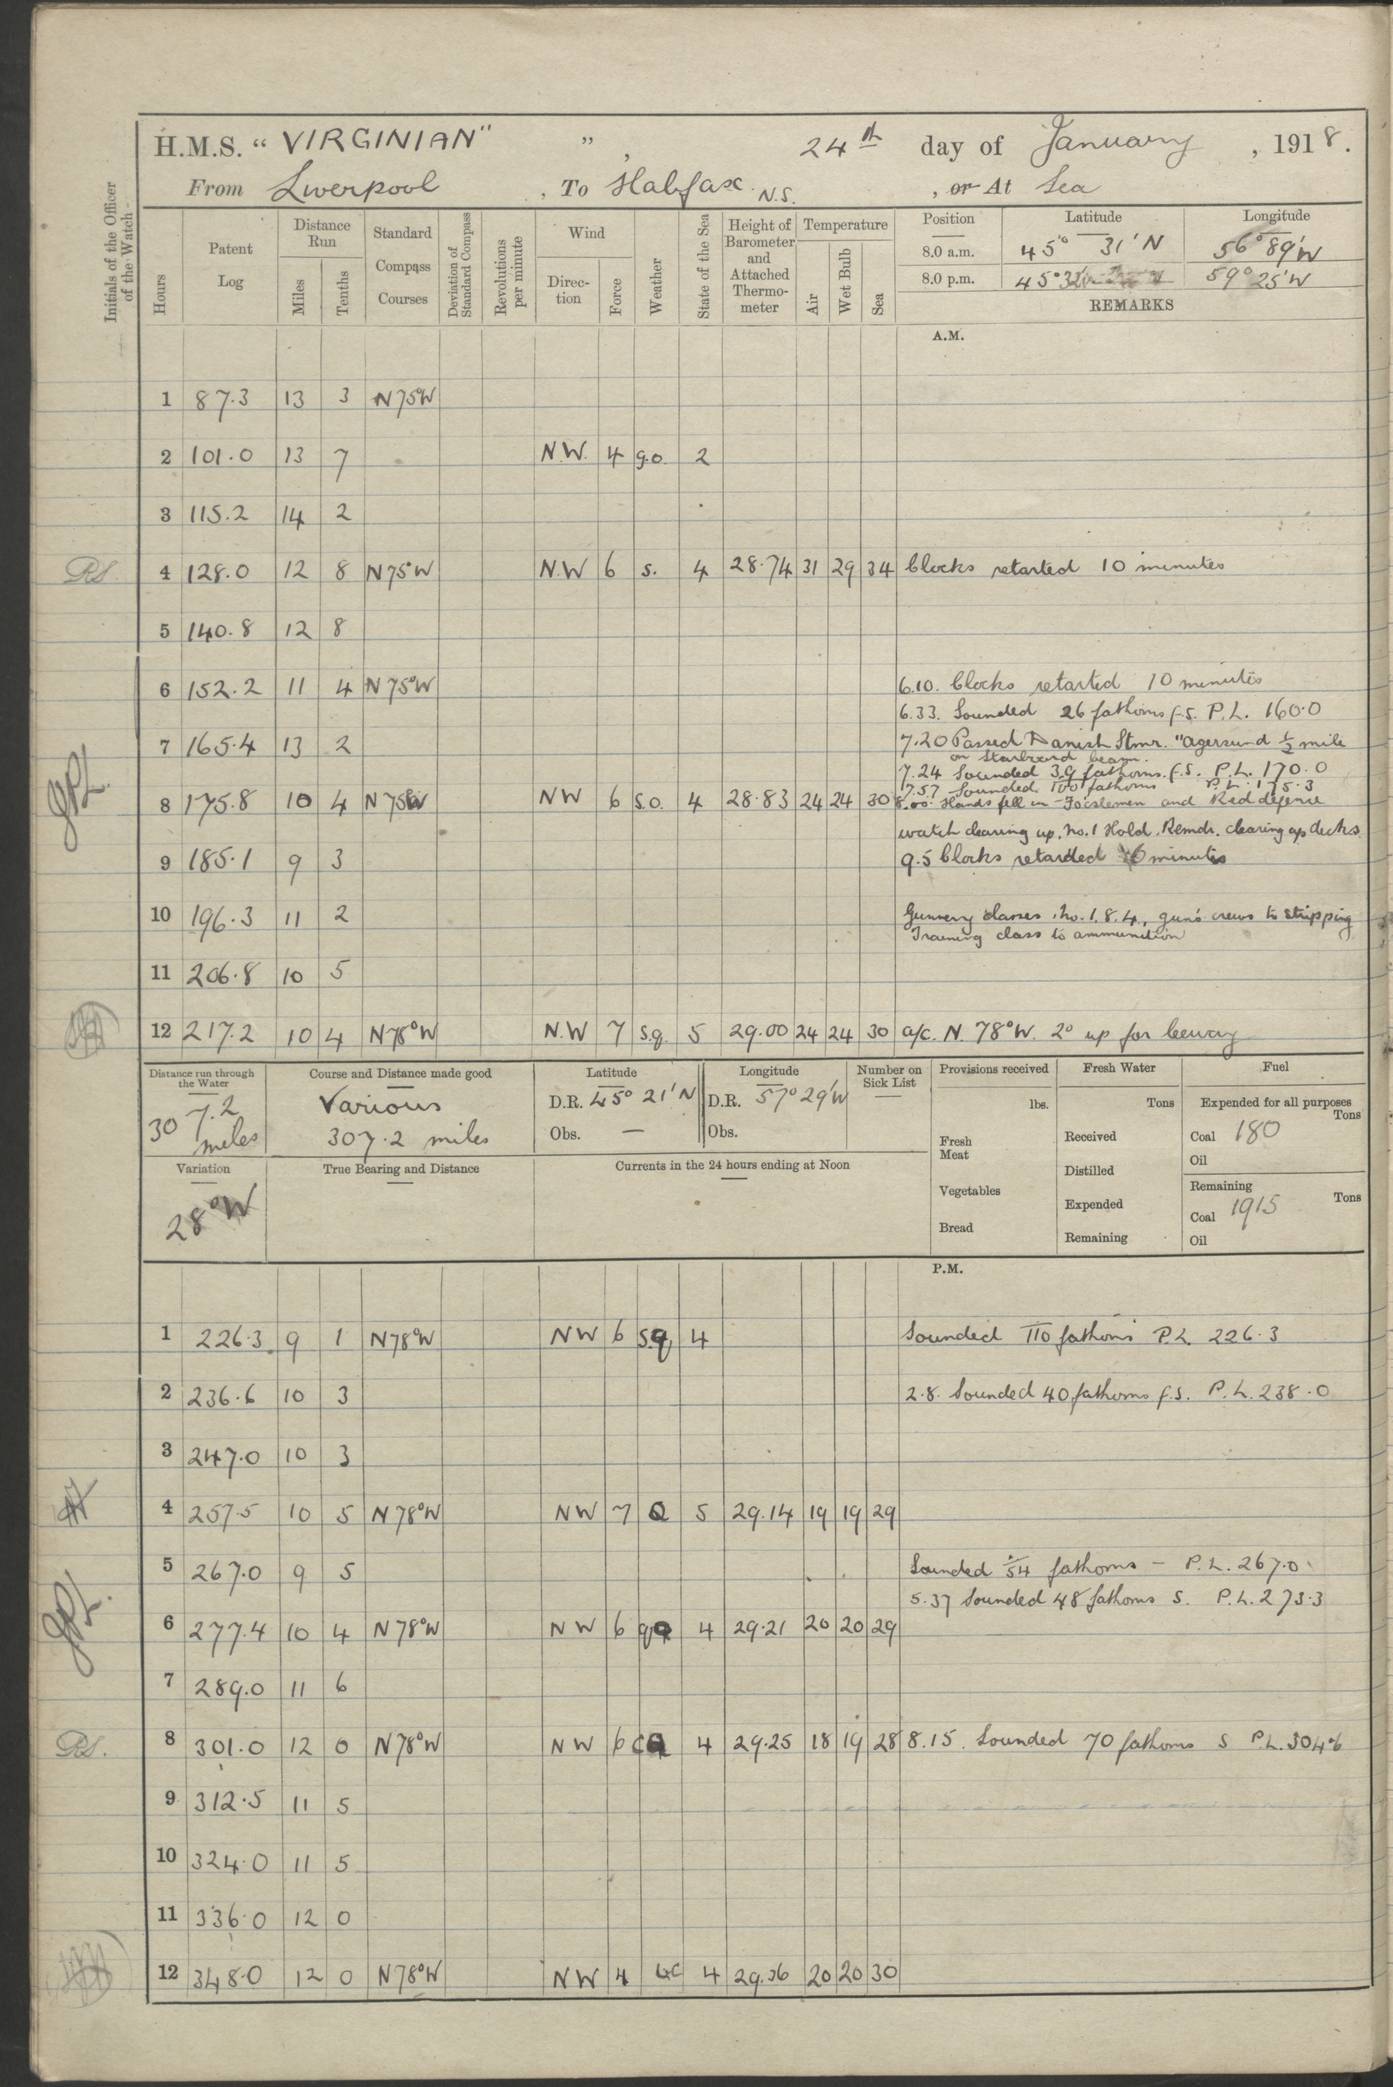 H.M.S. " VIRGINIAN" ", 24th day of January, 1918.
From Liverpool, To Halifax N.S., or At Sea
Initials of the Officer of the Watch
Hours
Patent Log
Distance Run
Miles
Tenths
Standard Compass Courses
Deviation of Standard Compass
Revolutions per minute
Wind
Direction
Force
Weather
State of the Sea
Height of Barometer and Attached Thermometer
Temperature
Air
Wet Bulb
Sea
Position Latitude Longitude
8.0 a.m. 45° 31' N 56° 89' W
8.0 p.m. 45° 32' 59° 25' W
REMARKS
A.M.
1 87.3 13 3 N75W
2 101.0 13 7 N.W. 4 g.o. 2
3 115.2 14 2
R.S. 4 128.0 12 8 N75W N.W 6 s. 4 28.74 31 29 34 Clocks retarted 10 minutes
5 140.8 12 8
6 152.2 11 4 N75°W 6.10. Clocks retarted 10 minutes
6.33. Sounded 26 fathoms f.s. P.L. 160.0
7 165.4 13 2 7.20 Passed Danish Stmr. "Agersund ½ mile
on starboard beam.
7.24 Sounded 39 fathoms. f.s. P.L. 170.0
7.57 Sounded 100 fathoms P.L. 175.3
8 175.8 10 4 N75W NW 6 s.o. 4 28.83 24 24 30 8.00. Hands fell in - Focslemen and Red defence
watch clearing up. No. 1 Hold. Remdr. clearing up decks
9 185.1 9 3 9.5 Clocks retarded 6 minutes
10 196.3 11 2 Gunnery classes, No. 1. 8. 4, gun's crews to stripping
Training class to ammunition
11 206.8 10 5
12 217.2 10 4 N78°W N.W 7 s.q. 5 29.00 24 24 30 a/c. N. 78°W. 2° up for leeway
Distance run through the Water
307.2 miles
Course and Distance made good
Various
307.2 miles
Latitude
D.R. 45° 21' N
Obs. —
Longitude
D.R. 57° 29' W
Obs.
Number on Sick List
Provisions received
lbs.
Fresh Meat
Vegetables
Bread
Fresh Water
Tons
Received
Distilled
Expended
Remaining
Fuel
Expended for all purposes
Tons
Coal 180
Oil
Remaining
Tons
Coal 1915
Oil
Variation
28°W
True Bearing and Distance
Currents in the 24 hours ending at Noon
P.M.
1 226.3 9 1 N78°W NW 6 s.q 4 Sounded 110 fathoms P.L. 226.3
2 236.6 10 3 2.8. Sounded 40 fathoms f.s. P.L. 238.0
3 247.0 10 3
4 257.5 10 5 N78°W NW 7 Q 5 29.14 19 19 29
5 267.0 9 5 Sounded 54 fathoms — P.L. 267.0
5.37 Sounded 48 fathoms S. P.L. 273.3
6 277.4 10 4 N78°W NW 6 4 29.21 20 20 29
7 289.0 11 6
R.S. 8 301.0 12 0 N78°W NW 6 cq 4 29.25 18 19 28 8.15. Sounded 70 fathoms S P.L. 304.6
9 312.5 11 5
10 324.0 11 5
11 336.0 12 0
12 348.0 12 0 N78°W NW 4 4 29.36 20 20 30